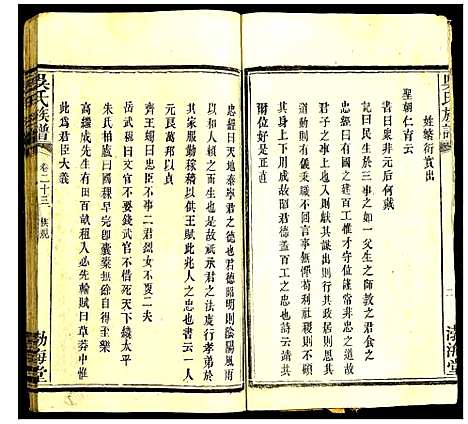 吳氏族譜
姓繁衍實出
聖朝仁育云
書云衆非元后何戴
記曰民生於三事之如一父生之師教之君食之
惟王建國百工之忠也官不可曠位謹常非忠之道故
動則有儀秉職不回言事無憚苟利社稷則不
則入則獻其謀出則行其政居則
其身上下用成故昭君德蓋百工之忠也詩云靖共
爾位好是正直
渤海堂
忠經曰天地泰寧君之德也君德昭明則陰陽風雨
以和人賴之而生也是故祇承君之法度行孝弟於
其家服勤稼穡以供王賦此兆人之忠也書云一人
元良萬邦以貞
齊王蠋曰忠臣不事二君烈女不更二夫
岳武穆曰文官不要錢武官不惜死天下太平
朱氏柏廬曰國課早完即囊橐無餘自得至樂
高繼成先生有田百畝租入必先輸賦曰草莽中惟
此為君臣大義
吳氏族譜
卷二十三
渤海堂